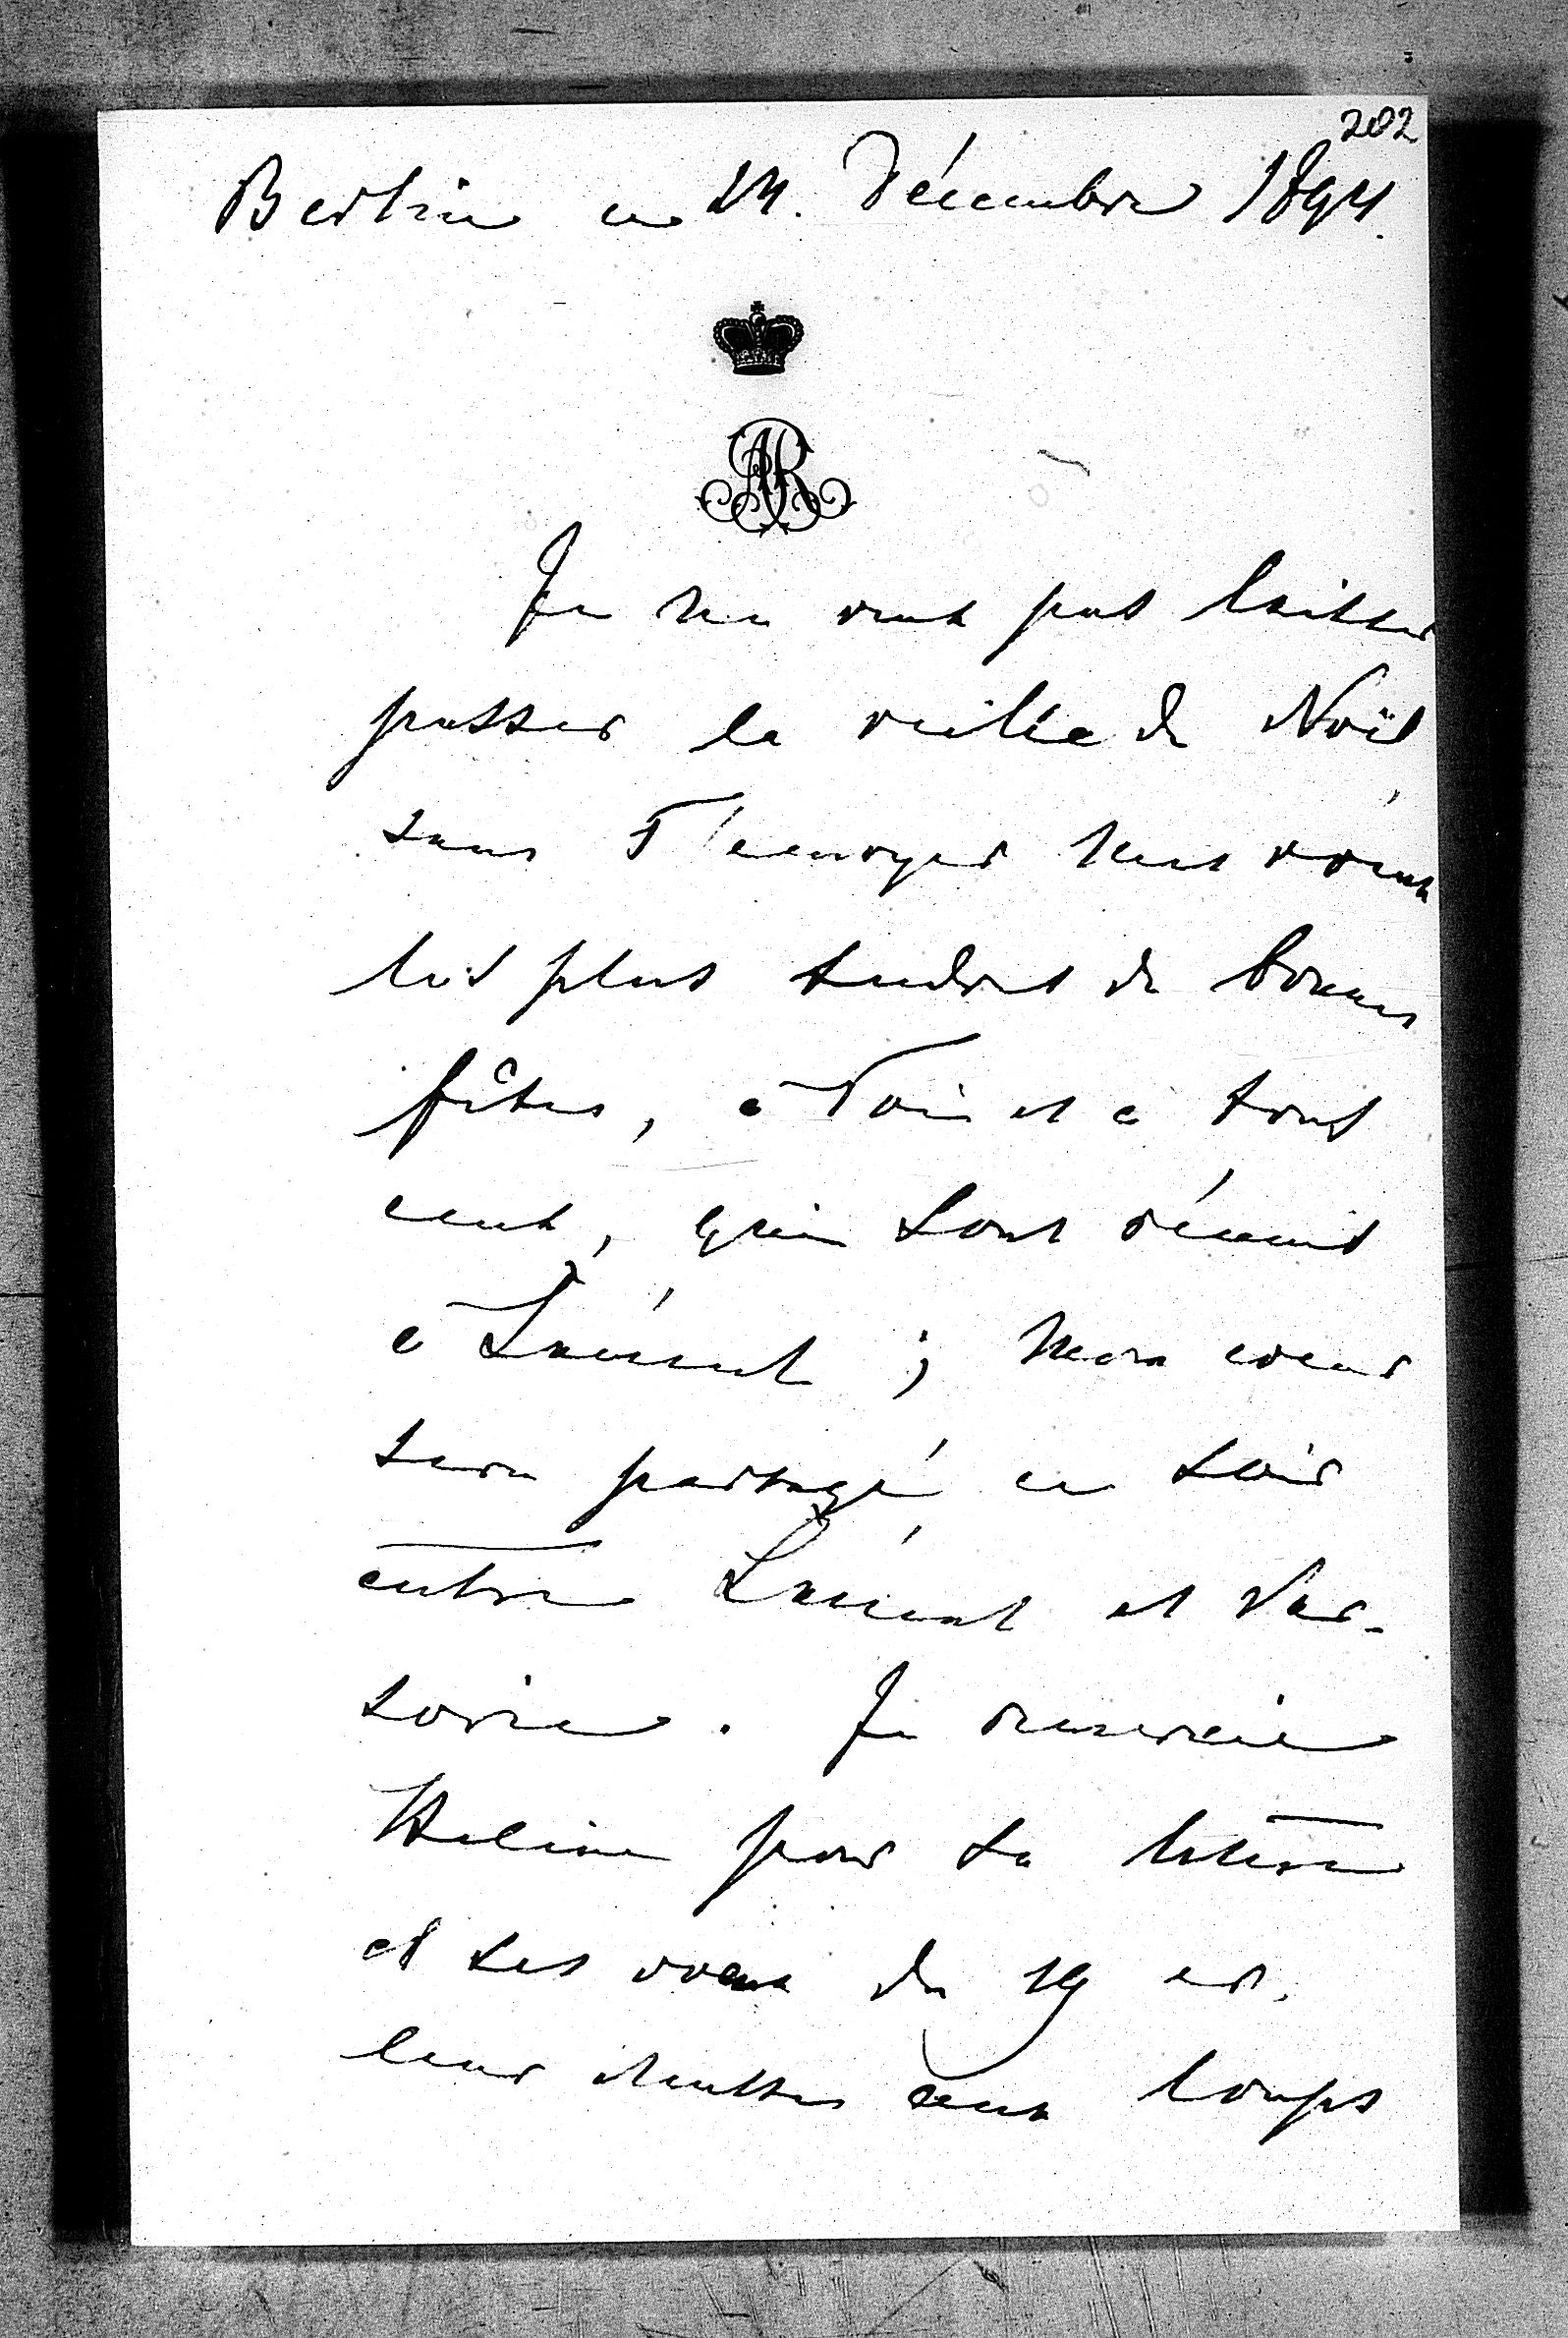 202
Berlin ce 24. Décembre 1894.
AR
Je ne veux pas laisser
passer la veille de Noël
sans T'envoyer mes voeux
les plus tendres de bonnes
fêtes, à Toi et à tous
ceux, qui sont réunis
à Łańcut ; mon coeur
sera partagé ce soir
entre Łańcut et Var-
sovie. Je remercie
Helène pour sa lettre
et ses voeux du 19 et.
leur chasses aux loups